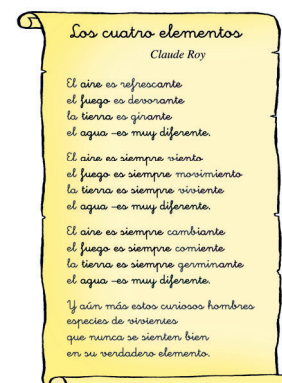 Los cuatro elementos
Claude Roy
El aire es refrescante
el fuego es devorante
la tierra es girante
el agua –es muy diferente.
El aire es siempre viento
el fuego es siempre movimiento
la tierra es siempre viviente
el agua –es muy diferente.
El aire es siempre cambiante
el fuego es siempre comiente
la tierra es siempre germinante
el agua –es muy diferente.
Y aún más estos curiosos hombres
especies de vivientes
que nunca se sienten bien
en su verdadero elemento.